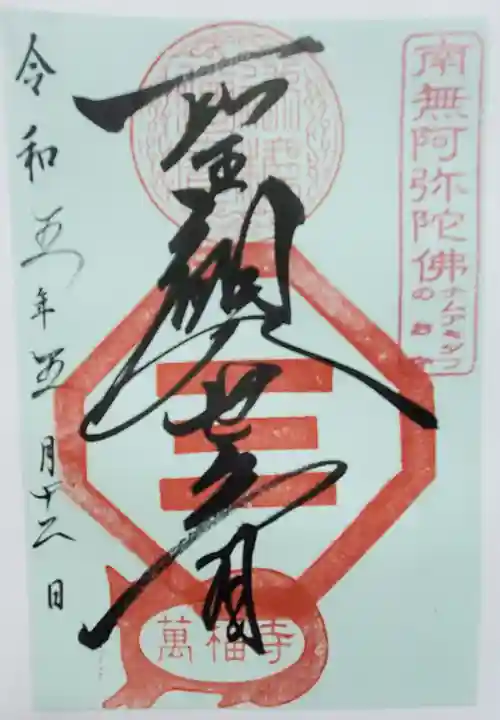 南無阿弥陀佛
ナムアミダブ
の
聖観世音
萬福寺
令和五年五月十二日